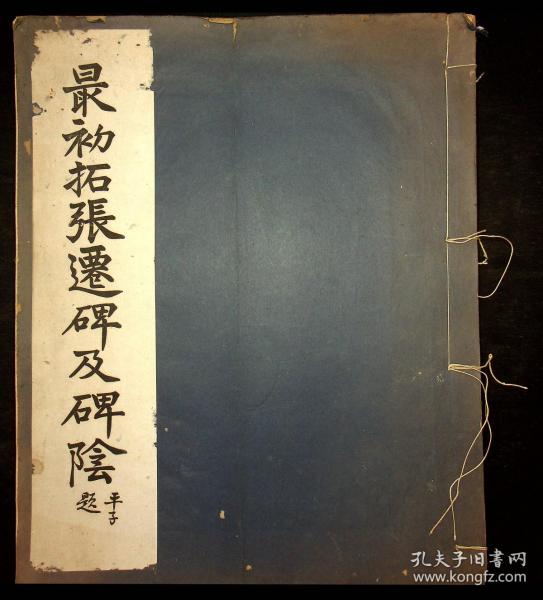 最初拓張遷碑及碑陰
平子
題
孔夫子旧书网
www.kongfz.com